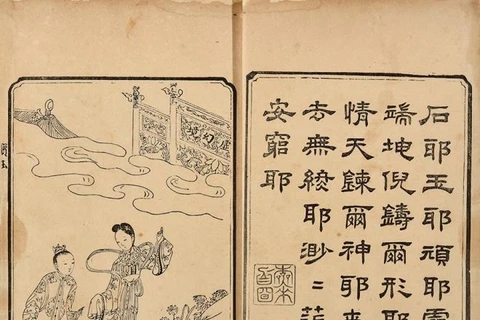 石耶玉耶頑耶
端坤倪鑄爾形耶
情天鍊爾神耶來
去無耶渺〻
安窮耶
幻境